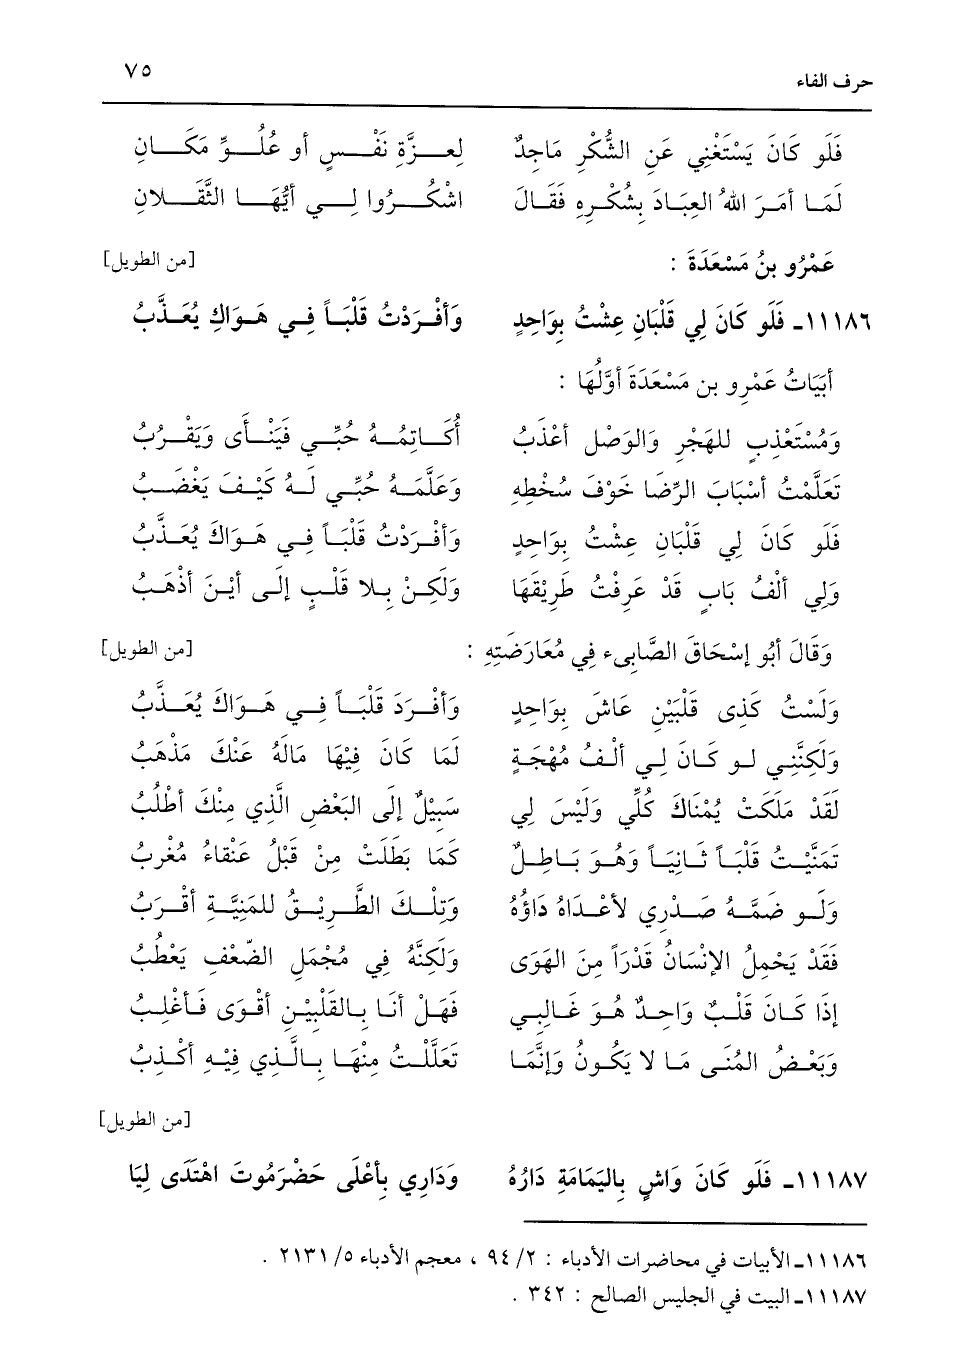 حرف الفاء ٧٥
فَلَو كَانَ يَسْتَغْنِي عَنِ الشُّكْرِ مَاجِدٌ لِعِـزَّةِ نَفْسٍ أو عُلُوِّ مَكَانِ
لَمَا أمَرَ اللهُ العِبَادَ بِشُكْرِهِ فَقَالَ اشْكُرُوا لِي أيُّهَا الثَّقَلانِ
عَمْرُو بنُ مَسْعَدَةَ : [من الطويل]
١١١٨٦ـ فَلَو كَانَ لِي قَلبَانِ عِشْتُ بِوَاحِدٍ وَأفْرَدْتُ قَلْبَاً فِي هَوَاكِ يُعَذَّبُ
أبيَاتُ عَمْرِو بن مَسْعَدَةَ أوَّلُهَا :
وَمُسْتَعْذِبٍ للهَجْرِ وَالوَصْل أعْذَبُ أُكَاتِمُهُ حُبِّي فَيَنْأى وَيَقْرُبُ
تَعَلَّمْتُ أسْبَابَ الرِّضَا خَوْفَ سُخْطِهِ وَعَلَّمَهُ حُبِّي لَهُ كَيْفَ يَغْضَبُ
فَلَو كَانَ لِي قَلْبَانِ عِشْتُ بِوَاحِدٍ وَأفْرَدْتُ قَلْبَاً فِي هَوَاكَ يُعَذَّبُ
وَلِي ألْفُ بَابٍ قَدْ عَرِفْتُ طَرِيْقَهَا وَلَكِنْ بِلا قَلْبٍ إلَى أيْنَ أذْهَبُ
وَقَالَ أبُو إسْحَاقَ الصَّابِيء فِي مُعَارَضَتِهِ : [من الطويل]
وَلَسْتُ كَذِى قَلْبَيْنِ عَاشَ بِوَاحِدٍ وَأفْرَدَ قَلْبَاً فِي هَوَاكَ يُعَذَّبُ
وَلَكِنَّنِي لو كَانَ لِي ألْفُ مُهْجَةٍ لَمَا كَانَ فِيْهَا مَالَهُ عَنْكَ مَذْهَبُ
لَقَدْ مَلَكَتْ يُمْنَاكَ كُلِّي وَلَيْسَ لِي سَبِيْلٌ إلَى البَعْضِ الَّذِي مِنْكَ أطْلُبُ
تَمَنَّيْتُ قَلْبَاً ثَانِيَاً وَهُوَ بَاطِلٌ كَمَا بَطَلَتْ مِنْ قَبْلُ عَنْقَاءُ مُغْرِبُ
وَلَو ضَمَّهُ صَدْرِي لأعْدَاهُ دَاؤُهُ وَتِلْكَ الطَّرِيْقُ للمَنِيَّةِ أقْرَبُ
فَقَدْ يَحْمِلُ الإنْسَانُ قَدْرَاً مِنَ الهَوَى وَلَكِنَّهُ فِي مُجْمَلِ الضّعْفِ يَعْطُبُ
إذَا كَانَ قَلْبٌ وَاحِدٌ هُوَ غَالِبِي فَهَلْ أنَا بِالقَلْبَيْنِ أقْوَى فَأغْلِبُ
وَبَعْضُ المُنَى مَا لا يَكُونُ وَإنَّمَا تَعَلَّلْتُ مِنْهَا بِالَّذِي فِيْهِ أكْذِبُ
[من الطويل]
١١١٨٧ـ فَلَو كَانَ وَاشٍ بِاليَمَامَةِ دَارُهُ وَدَارِي بِأعْلَى حَضْرَمُوتَ اهْتَدَى لِيَا
١١١٨٦ـ الأبيات في محاضرات الأدباء : ٢/ ٩٤ ، معجم الأدباء ٥/ ٢١٣١ .
١١١٨٧ـ البيت في الجليس الصالح : ٣٤٢ .